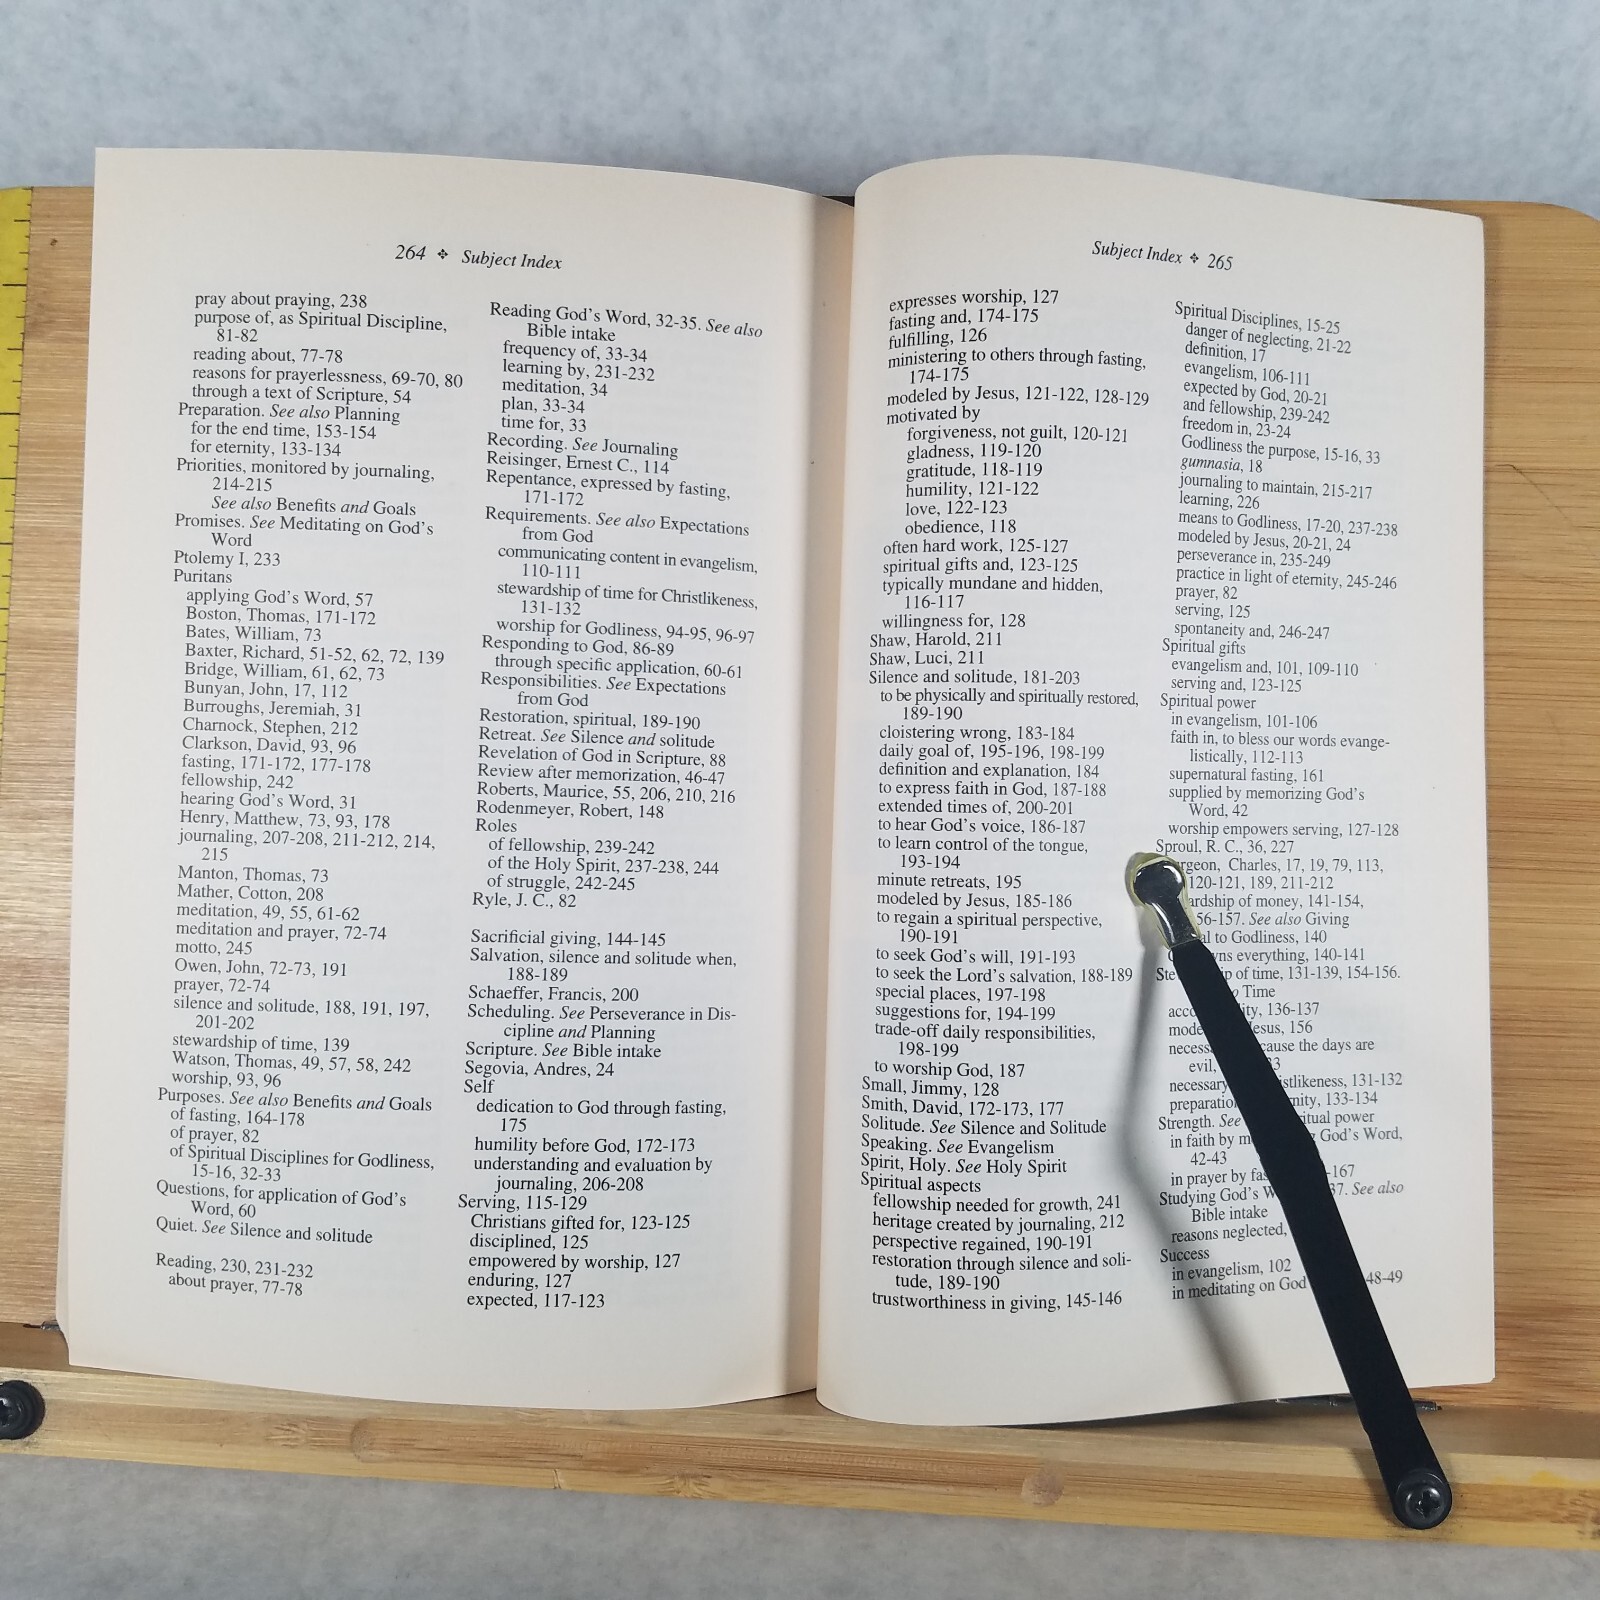 264 ❖ Subject Index
pray about praying, 238
purpose of, as Spiritual Discipline,
81-82
reading about, 77-78
reasons for prayerlessness, 69-70, 80
through a text of Scripture, 54
Preparation. See also Planning
for the end time, 153-154
for eternity, 133-134
Priorities, monitored by journaling,
214-215
See also Benefits and Goals
Promises. See Meditating on God's
Word
Ptolemy I, 233
Puritans
applying God's Word, 57
Boston, Thomas, 171-172
Bates, William, 73
Baxter, Richard, 51-52, 62, 72, 139
Bridge, William, 61, 62, 73
Bunyan, John, 17, 112
Burroughs, Jeremiah, 31
Charnock, Stephen, 212
Clarkson, David, 93, 96
fasting, 171-172, 177-178
fellowship, 242
hearing God's Word, 31
Henry, Matthew, 73, 93, 178
journaling, 207-208, 211-212, 214,
215
Manton, Thomas, 73
Mather, Cotton, 208
meditation, 49, 55, 61-62
meditation and prayer, 72-74
motto, 245
Owen, John, 72-73, 191
prayer, 72-74
silence and solitude, 188, 191, 197,
201-202
stewardship of time, 139
Watson, Thomas, 49, 57, 58, 242
worship, 93, 96
Purposes. See also Benefits and Goals
of fasting, 164-178
of prayer, 82
of Spiritual Disciplines for Godliness,
15-16, 32-33
Questions, for application of God's
Word, 60
Quiet. See Silence and solitude
Reading, 230, 231-232
about prayer, 77-78
Reading God's Word, 32-35. See also
Bible intake
frequency of, 33-34
learning by, 231-232
meditation, 34
plan, 33-34
time for, 33
Recording. See Journaling
Reisinger, Ernest C., 114
Repentance, expressed by fasting,
171-172
Requirements. See also Expectations
from God
communicating content in evangelism,
110-111
stewardship of time for Christlikeness,
131-132
worship for Godliness, 94-95, 96-97
Responding to God, 86-89
through specific application, 60-61
Responsibilities. See Expectations
from God
Restoration, spiritual, 189-190
Retreat. See Silence and solitude
Revelation of God in Scripture, 88
Review after memorization, 46-47
Roberts, Maurice, 55, 206, 210, 216
Rodenmeyer, Robert, 148
Roles
of fellowship, 239-242
of the Holy Spirit, 237-238, 244
of struggle, 242-245
Ryle, J. C., 82
Sacrificial giving, 144-145
Salvation, silence and solitude when,
188-189
Schaeffer, Francis, 200
Scheduling. See Perseverance in Dis-
cipline and Planning
Scripture. See Bible intake
Segovia, Andres, 24
Self
dedication to God through fasting,
175
humility before God, 172-173
understanding and evaluation by
journaling, 206-208
Serving, 115-129
Christians gifted for, 123-125
disciplined, 125
empowered by worship, 127
enduring, 127
expected, 117-123
Subject Index ❖ 265
expresses worship, 127
fasting and, 174-175
fulfilling, 126
ministering to others through fasting,
174-175
modeled by Jesus, 121-122, 128-129
motivated by
forgiveness, not guilt, 120-121
gladness, 119-120
gratitude, 118-119
humility, 121-122
love, 122-123
obedience, 118
often hard work, 125-127
spiritual gifts and, 123-125
typically mundane and hidden,
116-117
willingness for, 128
Shaw, Harold, 211
Shaw, Luci, 211
Silence and solitude, 181-203
to be physically and spiritually restored,
189-190
cloistering wrong, 183-184
daily goal of, 195-196, 198-199
definition and explanation, 184
to express faith in God, 187-188
extended times of, 200-201
to hear God's voice, 186-187
to learn control of the tongue,
193-194
minute retreats, 195
modeled by Jesus, 185-186
to regain a spiritual perspective,
190-191
to seek God's will, 191-193
to seek the Lord's salvation, 188-189
special places, 197-198
suggestions for, 194-199
trade-off daily responsibilities,
198-199
to worship God, 187
Small, Jimmy, 128
Smith, David, 172-173, 177
Solitude. See Silence and Solitude
Speaking. See Evangelism
Spirit, Holy. See Holy Spirit
Spiritual aspects
fellowship needed for growth, 241
heritage created by journaling, 212
perspective regained, 190-191
restoration through silence and soli-
tude, 189-190
trustworthiness in giving, 145-146
Spiritual Disciplines, 15-25
danger of neglecting, 21-22
definition, 17
evangelism, 106-111
expected by God, 20-21
and fellowship, 239-242
freedom in, 23-24
Godliness the purpose, 15-16, 33
gumnasia, 18
journaling to maintain, 215-217
learning, 226
means to Godliness, 17-20, 237-238
modeled by Jesus, 20-21, 24
perseverance in, 235-249
practice in light of eternity, 245-246
prayer, 82
serving, 125
spontaneity and, 246-247
Spiritual gifts
evangelism and, 101, 109-110
serving and, 123-125
Spiritual power
in evangelism, 101-106
faith in, to bless our words evange-
listically, 112-113
supernatural fasting, 161
supplied by memorizing God's
Word, 42
worship empowers serving, 127-128
Sproul, R. C., 36, 227
Charles, 17, 19, 79, 113,
120-121, 189, 211-212
of money, 141-154,
See also Giving
to Godliness, 140
everything, 140-141
of time, 131-139, 154-156.
Time
136-137
Jesus, 156
the days are
evil,
necessary 131-132
133-134
Strength. See power
in faith by God's Word,
42-43
in prayer by
Studying God's See also
Bible intake
reasons neglected,
Success
in evangelism, 102
in meditating on God 48-49